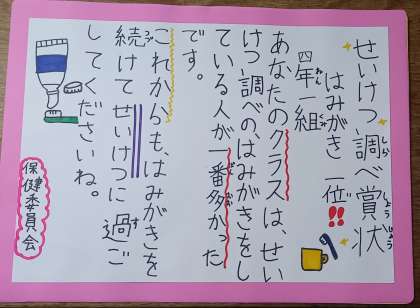 せいけつ調べ賞状
はみがき一位!!
四年一組
あなたのクラスは、せい
けつ調べの、はみがきをし
ている人が一番多かった
です。
これからも、はみがきを
続けてせいけつに過ご
してくださいね。
保健委員会